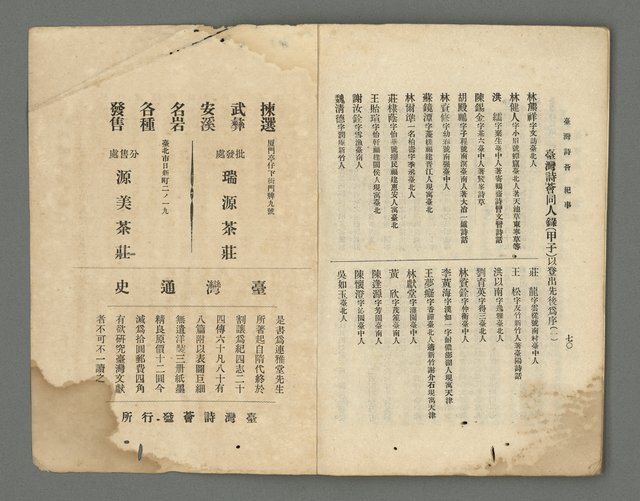 臺灣詩薈 紀事
七〇
臺灣詩薈同人錄(甲子)以登出先後爲序(一)
林熊祥字文訪臺北人
洪繻字棄生臺中人著寄鶴齋詩矕文矕詩話
陳錫金字基六臺中人著鰲峯詩草
胡殿鵬字子程號南溟臺南人著大冶一爐詩話
林資修字幼春號南强臺中人
蘇鏡潭字菱槎福建晉江人現寓臺北
林爾嘉一名柏壽字季丞臺北人
莊棣蔭字怡華號纓民福建惠安人寓臺北
王貽瑄字怡軒福建閩侯人現寓臺北
謝汝銓字雪漁臺南人
魏清德字潤庵新竹人
莊龍字雲從號南村臺中人
王松字友竹新竹人著臺陽詩話
洪以南字逸雅臺北人
劉育英字得三臺北人
林資銓字仲衡臺中人
李黃海字漢如一字耐儂澎湖人現寓天津
王夢癡字香禪臺北人適新竹謝介石現寓天津
林獻堂字灌園臺中人
黃欣字茂笙臺南人
陳逢源字芳園臺南人
陳懷澄字沁園臺中人
吳如玉臺北人
揀選
武彝
安溪
名岩
各種
發售
厦門亭仔下街門牌九號
批發處
瑞源茶莊
臺北市日新町二ノ一九
分售處
源美茶莊
臺灣通史
是書爲連雅堂先生
所著起自隋代終於
割讓爲紀四志二十
四傳六十凡八十有
八篇附以表圖巨細
無遺洋裝三册紙墨
精良原價十二圓今
減爲拾圓郵費四角
有欲硏究臺灣文獻
者不可不一讀之
臺灣詩薈發行所